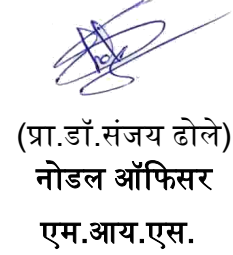 (प्रा.डॉ.संजय ढोले)
नोडल ऑफिसर
एम.आय.एस.